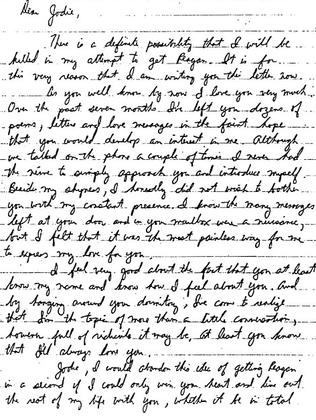 Dear Jodie,
There is a definite possibility that I will be
killed in my attempt to get Reagan. It is for
this very reason that I am writing you this letter now.
As you well know by now I love you very much.
Over the past seven months I've left you dozens of
poems, letters and love messages in the faint hope
that you would develop an interest in me. Although
we talked on the phone a couple of times I never had
the nerve to simply approach you and introduce myself.
Besides my shyness, I honestly did not wish to bother
you with my constant presence. I know the many messages
left at your door and in your mailbox were a nuisance,
but I felt that it was the most painless way for me
to express my love for you.
I feel very good about the fact that you at least
know my name and know how I feel about you. And
by hanging around your dormitory, I've come to realize
that I'm the topic of more than a little conversation,
however full of ridicule it may be. At least you know
that I'll always love you.
Jodie, I would abandon this idea of getting Reagan
in a second if I could only win your heart and live out
the rest of my life with you, whether it be in total